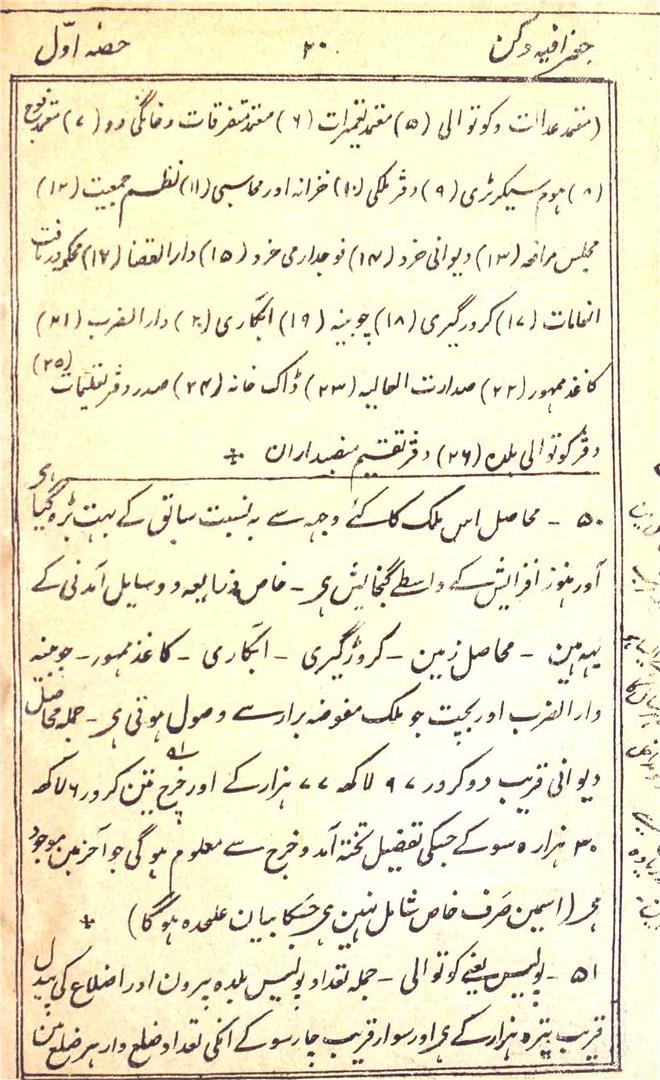 جغرافیہ دکن ۲۰ حصہ اوّل
(معتمد عدالت و کوتوالی (۵) معتمد تعمیرات (۶) معتمد متفرقات و خانگی دو (۷) معتمد فوج
(۸) ہوم سیکرٹری (۹) دفتر ملکی (۱۰) خزانہ اور محاسبی (۱۱) نظم جمعیت (۱۲)
مجلس مرافعہ (۱۳) دیوانی خرد (۱۴) فوجداری خرد (۱۵) دارالقضا (۱۶) محکمہ دریافت
انعامات (۱۷) کرورگیری (۱۸) چوبینہ (۱۹) ابکاری (۲۰) دارالضرب (۲۱)
کاغذ ممہور (۲۲) صدارت العالیہ (۲۳) ڈاک خانہ (۲۴) صدر دفتر تعلیمات (۲۵)
دفتر کوتوالی بلدہ (۲۶) دفتر تقسیم منصبداران
۵۰ - محاصل اس ملک کا کئے وجہہ سے بہ نسبت سابق کے بہت بڑہ گیا ہی
اور ہنوز افزایش کے واسطے گنجایش ہی - خاص ذرایعہ و وسایل آمدنی کے
یہہ ہین - محاصل زمین - کروڑگیری - ابکاری - کاغذ ممہور - چوبینہ
دارالضرب اور بچت جو ملک مفوضہ برار سے وصول ہوتی ہی - جملہ محاصل
دیوانی قریب دو کرور ۹۷ لاکھ ۷۷ ہزار کے اور خرچ تین کرور ۶ لاکھ
۳۰ ہزار ۵ سو کے جسکی تفصیل تختہ آمد و خرج سے معلوم ہوگی جو آخر مین موجود
ہی (اسمین صرف خاص شامل نہین ہی جسکا بیان علحدہ ہوگا)
۵۱ - پولیس یعنے کوتوالی - جملہ تعداد پولیس بلدہ بیرون اور اضلاع کی پیدل
قریب تیرہ ہزار کے ہی اور سوار قریب چار سو کے انکی تعداد ضلع وار ہر ضلع مین